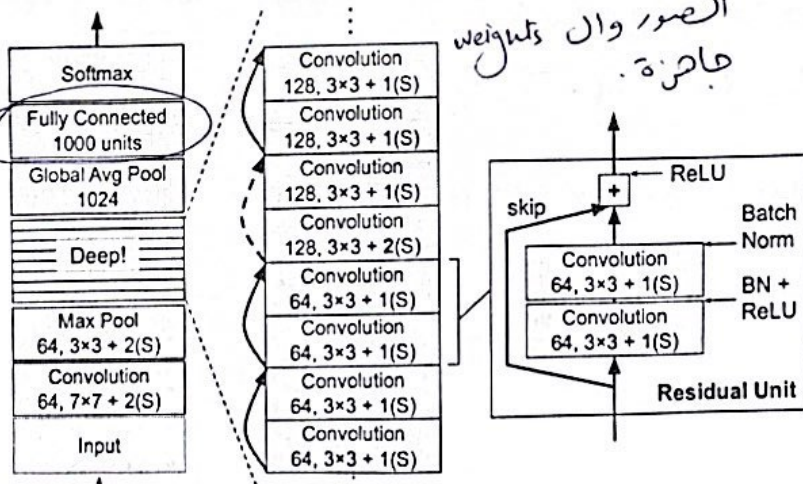 الصور وال weights
جاهزة.
Softmax
Fully Connected
1000 units
Global Avg Pool
1024
Deep!
Max Pool
64, 3×3 + 2(S)
Convolution
64, 7×7 + 2(S)
Input
Convolution
128, 3×3 + 1(S)
Convolution
128, 3×3 + 1(S)
Convolution
128, 3×3 + 1(S)
Convolution
128, 3×3 + 2(S)
Convolution
64, 3×3 + 1(S)
Convolution
64, 3×3 + 1(S)
Convolution
64, 3×3 + 1(S)
Convolution
64, 3×3 + 1(S)
ReLU
+
skip
Batch
Norm
Convolution
64, 3×3 + 1(S)
BN +
ReLU
Convolution
64, 3×3 + 1(S)
Residual Unit